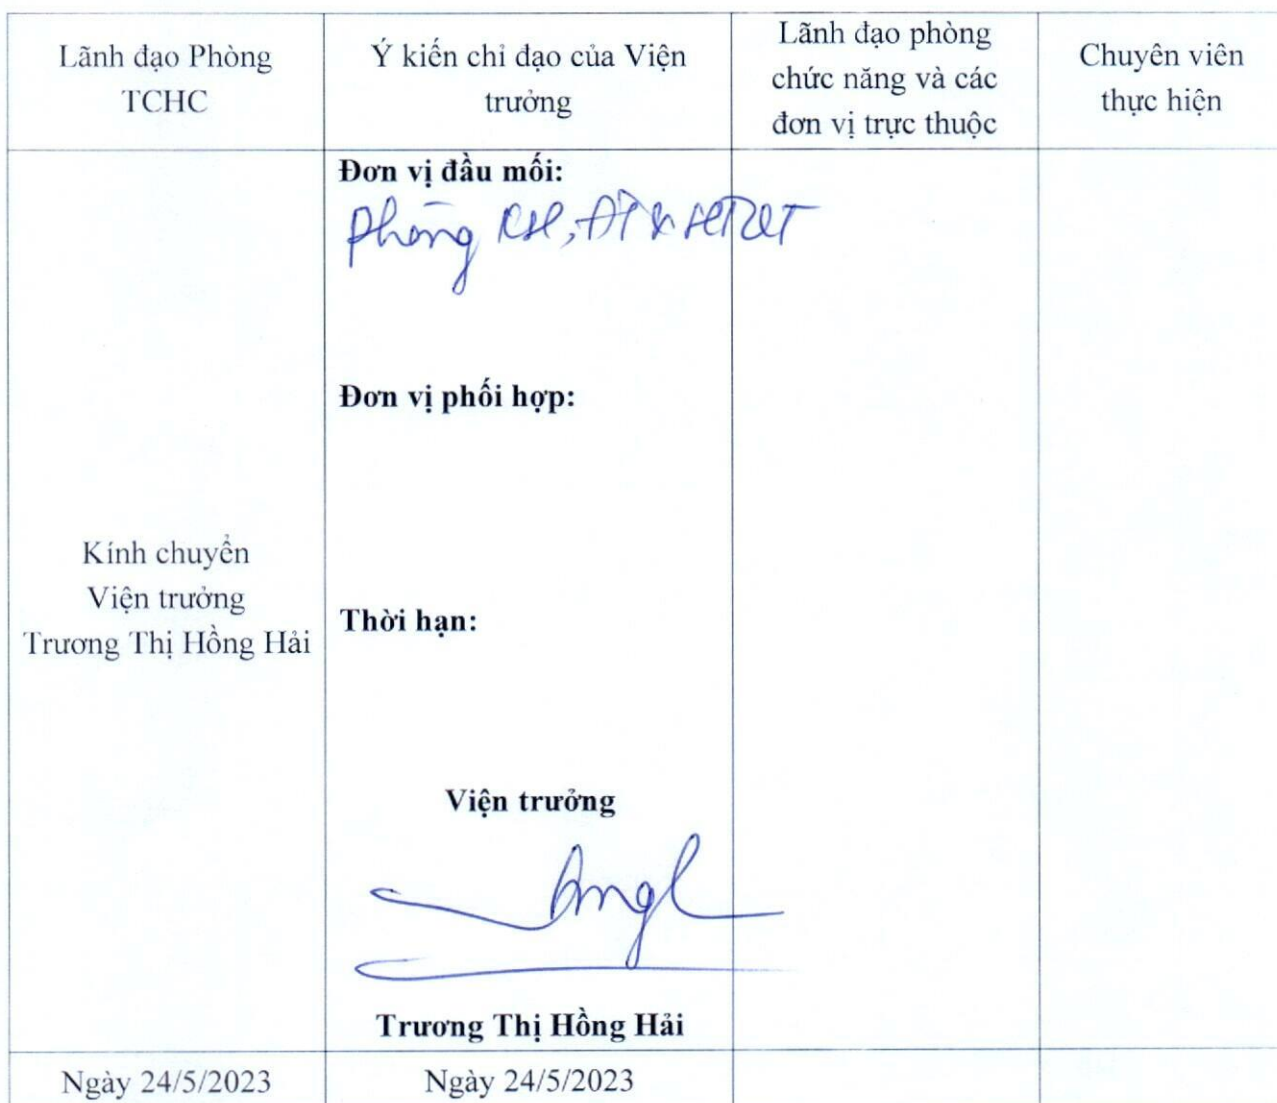 Lãnh đạo Phòng
TCHC
Ý kiến chỉ đạo của Viện
trưởng
Lãnh đạo phòng
chức năng và các
đơn vị trực thuộc
Chuyên viên
thực hiện
Kính chuyển
Viện trưởng
Trương Thị Hồng Hải
Đơn vị đầu mối:
Phòng KH, ĐT & HTQT
Đơn vị phối hợp:
Thời hạn:
Viện trưởng
Trương Thị Hồng Hải
Ngày 24/5/2023
Ngày 24/5/2023